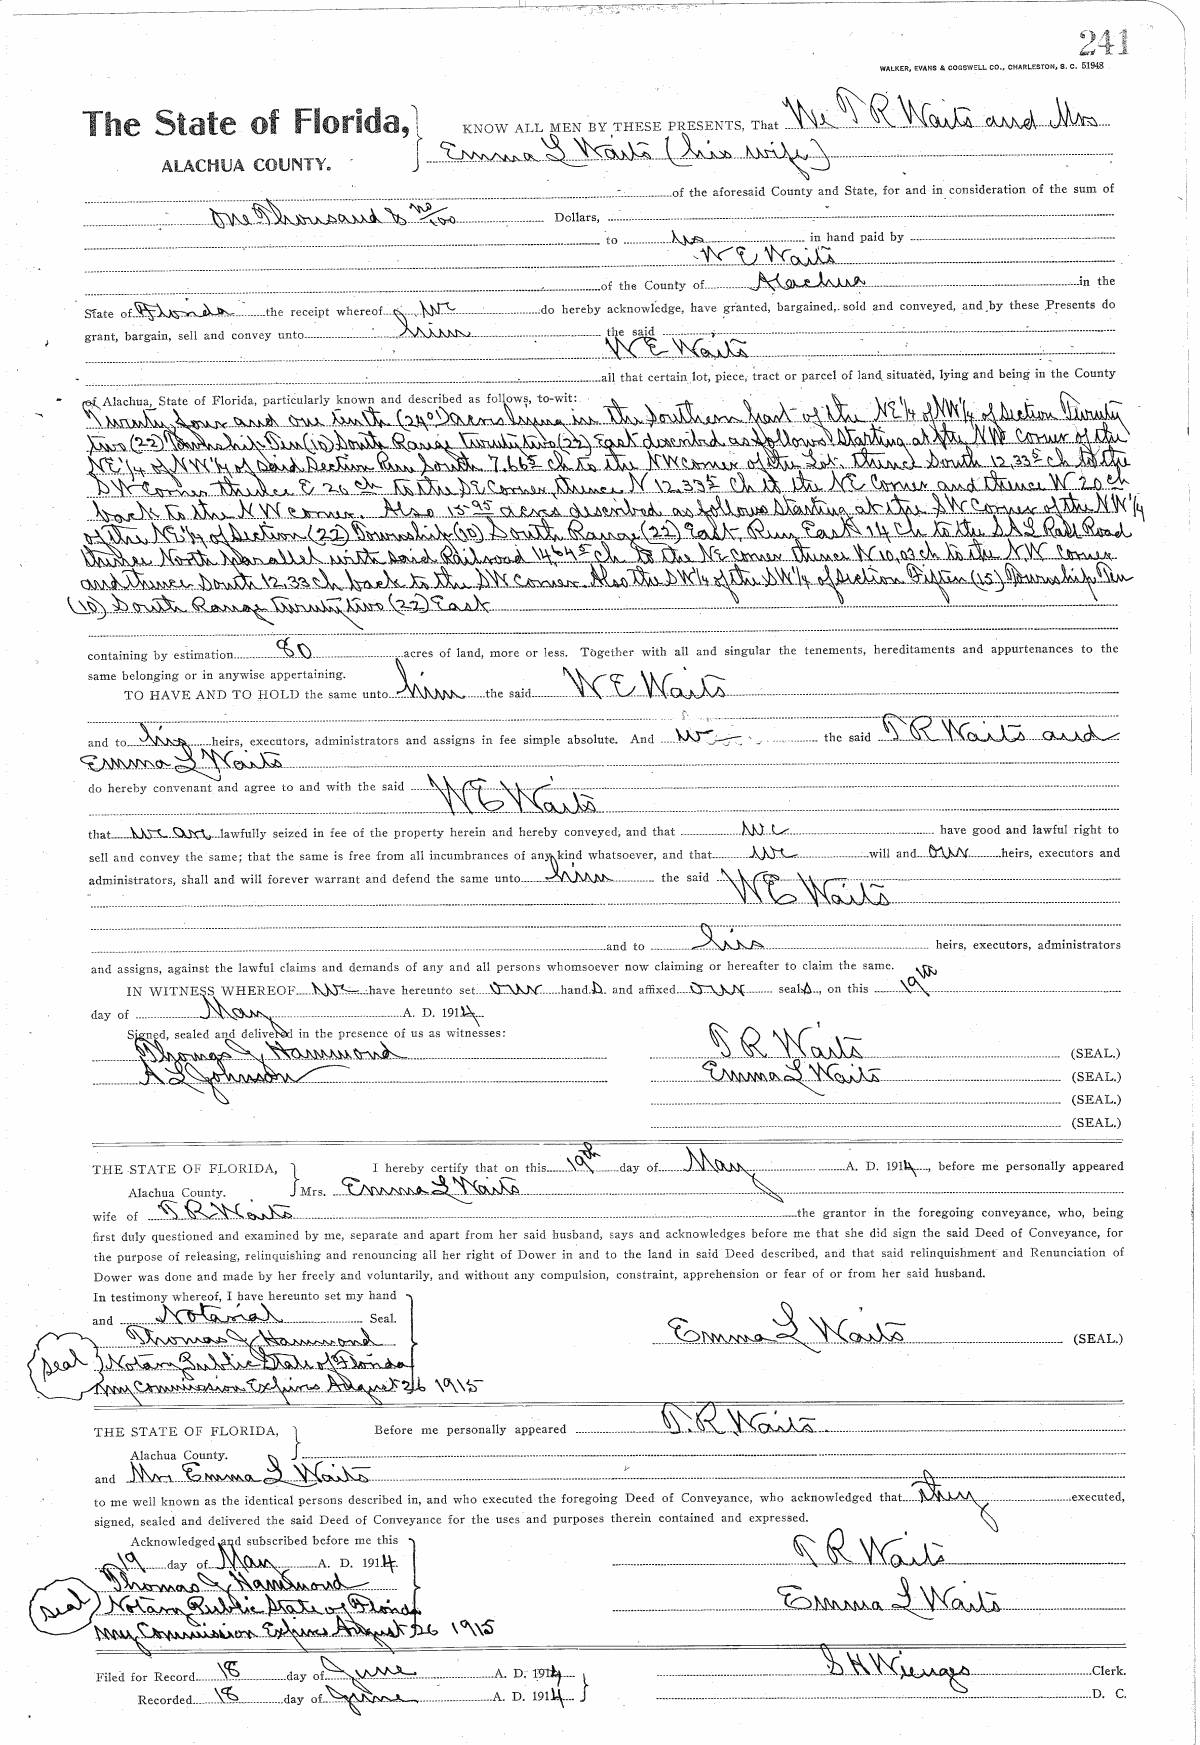 241
WALKER, EVANS & COGSWELL CO., CHARLESTON, S. C. 51948
The State of Florida,
ALACHUA COUNTY.
KNOW ALL MEN BY THESE PRESENTS, That We T R Waits and Mrs
Emma L Waits (his wife)
of the aforesaid County and State, for and in consideration of the sum of
One Thousand & no/100 Dollars,
to us in hand paid by
W E Waits
of the County of Alachua in the
State of Florida the receipt whereof we do hereby acknowledge, have granted, bargained, sold and conveyed, and by these Presents do
grant, bargain, sell and convey unto him the said
W E Waits
all that certain lot, piece, tract or parcel of land situated, lying and being in the County
of Alachua, State of Florida, particularly known and described as follows, to-wit:
Twenty four and one tenth acres lying in the Southern part of the NE 1/4 of NW 1/4 of Section Twenty
two (22) Township Ten (10) South Range twenty two (22) East described as follows Starting at the NW corner of the
NE 1/4 of NW 1/4 of said Section Run South 7.66⁵ ch to the NW corner of the Lot. thence South 12.33⁵ ch to the
SW Corner thence E 20 ch to the SE Corner, thence N 12.33⁵ ch to the NE Corner and thence W 20 ch
back to the NW corner. Also 15.95 acres described as follows Starting at the SW Corner of the NW 1/4
of the NE 1/4 of Section (22) Township (10) South Range (22) East, Run East 14 Ch to the S A L Rail Road
thence North parallel with said Railroad 14.64⁵ ch to the NE corner thence W 10.03 ch to the NW Corner
and thence South 12.33 ch back to the SW Corner. Also the SW 1/4 of the SW 1/4 of Section Fifteen (15) Township Ten
(10) South Range twenty two (22) East
containing by estimation 80 acres of land, more or less. Together with all and singular the tenements, hereditaments and appurtenances to the
same belonging or in anywise appertaining.
TO HAVE AND TO HOLD the same unto him the said W E Waits
and to his heirs, executors, administrators and assigns in fee simple absolute. And we the said T R Waits and
Emma L Waits
do hereby convenant and agree to and with the said W E Waits
that we are lawfully seized in fee of the property herein and hereby conveyed, and that we have good and lawful right to
sell and convey the same; that the same is free from all incumbrances of any kind whatsoever, and that we will and our heirs, executors and
administrators, shall and will forever warrant and defend the same unto him the said W E Waits
and to his heirs, executors, administrators
and assigns, against the lawful claims and demands of any and all persons whomsoever now claiming or hereafter to claim the same.
IN WITNESS WHEREOF we have hereunto set our hands and affixed our seals, on this 19th
day of May A. D. 1914
Signed, sealed and delivered in the presence of us as witnesses:
Thomas J Hammond
A L Johnson
T R Waits (SEAL.)
Emma L Waits (SEAL.)
(SEAL.)
(SEAL.)
THE STATE OF FLORIDA,
Alachua County.
I hereby certify that on this 19th day of May A. D. 1914, before me personally appeared
Mrs. Emma L Waits
wife of T R Waits the grantor in the foregoing conveyance, who, being
first duly questioned and examined by me, separate and apart from her said husband, says and acknowledges before me that she did sign the said Deed of Conveyance, for
the purpose of releasing, relinquishing and renouncing all her right of Dower in and to the land in said Deed described, and that said relinquishment and Renunciation of
Dower was done and made by her freely and voluntarily, and without any compulsion, constraint, apprehension or fear of or from her said husband.
In testimony whereof, I have hereunto set my hand
and Notarial Seal.
Thomas J Hammond
Seal Notary Public State of Florida
My Commission Expires August 26 1915
Emma L Waits (SEAL.)
THE STATE OF FLORIDA,
Alachua County.
Before me personally appeared T. R. Waits
and Mrs Emma L Waits
to me well known as the identical persons described in, and who executed the foregoing Deed of Conveyance, who acknowledged that they executed,
signed, sealed and delivered the said Deed of Conveyance for the uses and purposes therein contained and expressed.
Acknowledged and subscribed before me this
19 day of May A. D. 1914
Thomas J Hammond
Seal Notary Public State of Florida
My Commission Expires August 26 1915
T R Waits
Emma L Waits
Filed for Record 18 day of June A. D. 1914
Recorded 18 day of June A. D. 1914
S H Wienges Clerk.
D. C.